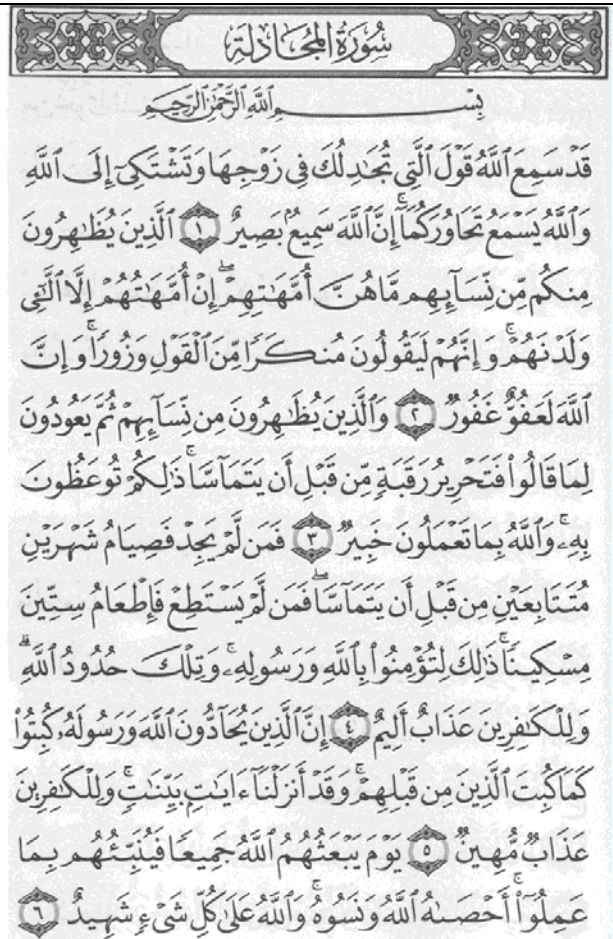 سُورَةُ المُجَادلَةِ
بِسْمِ ٱللَّهِ ٱلرَّحْمَٰنِ ٱلرَّحِيمِ
قَدْ سَمِعَ ٱللَّهُ قَوْلَ ٱلَّتِي تُجَٰدِلُكَ فِي زَوْجِهَا وَتَشْتَكِيٓ إِلَى ٱللَّهِ
وَٱللَّهُ يَسْمَعُ تَحَاوُرَكُمَآۚ إِنَّ ٱللَّهَ سَمِيعُۢ بَصِيرٌ ١ ٱلَّذِينَ يُظَٰهِرُونَ
مِنكُم مِّن نِّسَآئِهِم مَّا هُنَّ أُمَّهَٰتِهِمْۖ إِنْ أُمَّهَٰتُهُمْ إِلَّا ٱلَّٰٓـِٔي
وَلَدْنَهُمْۚ وَإِنَّهُمْ لَيَقُولُونَ مُنكَرًا مِّنَ ٱلْقَوْلِ وَزُورًاۚ وَإِنَّ
ٱللَّهَ لَعَفُوٌّ غَفُورٌ ٢ وَٱلَّذِينَ يُظَٰهِرُونَ مِن نِّسَآئِهِمْ ثُمَّ يَعُودُونَ
لِمَا قَالُوا۟ فَتَحْرِيرُ رَقَبَةٍ مِّن قَبْلِ أَن يَتَمَآسَّاۚ ذَٰلِكُمْ تُوعَظُونَ
بِهِۦۚ وَٱللَّهُ بِمَا تَعْمَلُونَ خَبِيرٌ ٣ فَمَن لَّمْ يَجِدْ فَصِيَامُ شَهْرَيْنِ
مُتَتَابِعَيْنِ مِن قَبْلِ أَن يَتَمَآسَّاۖ فَمَن لَّمْ يَسْتَطِعْ فَإِطْعَامُ سِتِّينَ
مِسْكِينًاۚ ذَٰلِكَ لِتُؤْمِنُوا۟ بِٱللَّهِ وَرَسُولِهِۦۚ وَتِلْكَ حُدُودُ ٱللَّهِۗ
وَلِلْكَٰفِرِينَ عَذَابٌ أَلِيمٌ ٤ إِنَّ ٱلَّذِينَ يُحَآدُّونَ ٱللَّهَ وَرَسُولَهُۥ كُبِتُوا۟
كَمَا كُبِتَ ٱلَّذِينَ مِن قَبْلِهِمْۚ وَقَدْ أَنزَلْنَآ ءَايَٰتٍۭ بَيِّنَٰتٍۚ وَلِلْكَٰفِرِينَ
عَذَابٌ مُّهِينٌ ٥ يَوْمَ يَبْعَثُهُمُ ٱللَّهُ جَمِيعًا فَيُنَبِّئُهُم بِمَا
عَمِلُوٓا۟ۚ أَحْصَىٰهُ ٱللَّهُ وَنَسُوهُۚ وَٱللَّهُ عَلَىٰ كُلِّ شَيْءٍ شَهِيدٌ ٦